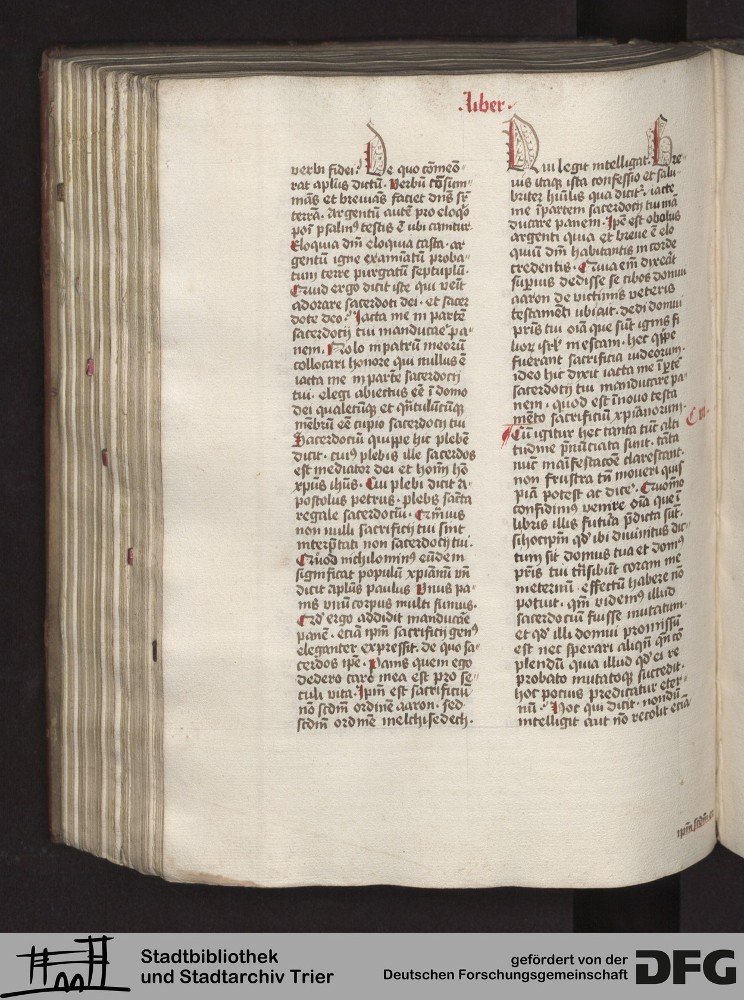 .Liber.
verbi fidei. De quo cōmeō-
rat apl̄us dictū. Verbū cōsum-
mās et breviās faciet dn̄s sr̄
terrā. Argentū autē pro eloq̄o
poī psalmꝰ testis ē ubi cantur.
Eloquia dn̄i eloquia casta. ar
gentū igne examīatū proba-
tum terre purgatū septuplū.
Quid ergo dicit iste qui venīt
adorare sacerdoti dei. et sacer
dote deo. Iacta me in partē
sacerdotij tui manducare pa-
nem. Nolo in patrū meorū
collocari honore qui nullus ē
iacta me in partē sacerdotij
tui. elegi abiectus eē ī domo
dei qualecūqꝫ et qn̄tulūcūqꝫ
mēbrū eē cupio sacerdotij tui
Sacerdociū quippe hic plebē
dicit. cuiꝰ plebis ille sacerdos
est mediator dei et homī hō
xp̄us ihūs. Cui plebi dicit a-
postolus petrus. plebs sācta
regale sacerdociū. Qm̄uis
non nulli sacrificij tui sint
interp̄tati non sacerdotij tui.
Quod nichilominꝰ eūdem
significat populū xp̄ianū vn̄
dicit apl̄us paulus Vnus pa-
nis vnū corpus multi sumus.
Qd̄ ergo addidit manducāe
panē. etiā ip̄m sacrificij genꝰ
eleganter expressit. de quo sa-
cerdos ip̄e. Panis quem ego
dedero caro mea est pro se-
culi vita. Ip̄m est sacrificiū
nō scd̄m ordinē aaron. sed
scd̄m ordinē melchisedech.
Qui legit intelligat. Bre-
uis itaqꝫ ista confessio et salu-
briter hūilis qua dicitᷣ. iacte
me ī partem sacerdotij tui mā
ducare panem. Ip̄e est obolus
argenti quia et breue ē elo
quiū dn̄i habitantis in corde
credentis. Quia em̄ dixerat
superius dedisse se cibos domui
aaron de victimis veteris
testamēti ubi ait. dedi domui
pr̄is tui oīa que sūt ignis fi
lioꝝ isrl̄ in escam. hec q̄ppe
fuerant sacrificia iudeorum.
ideo hic dixit iacta me ī ptē
sacerdotij tui manducare pa
nem. quod est ī nouo testa
mēto sacrificiū xp̄ianorum.
Cū igitur hec tanta tūc alti
tudine p̄nūciata sunt. tāta
nūc māifestacōe clarescant.
non frustra tn̄ moueri quis
piā potest ac dicere. Quomō
confidimꝰ venire oīa que ī
libris illis futura p̄dicta sūt.
si hoc ip̄m qd̄ ibi diuinitus dic-
tum sit domus tua et domꝰ
pr̄is tui trāsibūt coram me
ineternū. effectū habere nō
potuit. qm̄ videmꝰ illud
sacerdociū fuisse mutatum.
et qd̄ illi domui promissū
est nec sperari aliqn̄ qn̄ cō
plendū quia illud qd̄ ei re
probato mutatoqꝫ succedit.
hoc potius predicatur eter-
nū. Hoc qui dicit. nondū
intelligit aut nō recolit etiā
Cvi.
ip̄m scd̄m
Stadtbibliothek
und Stadtarchiv Trier
gefördert von der
Deutschen Forschungsgemeinschaft
DFG